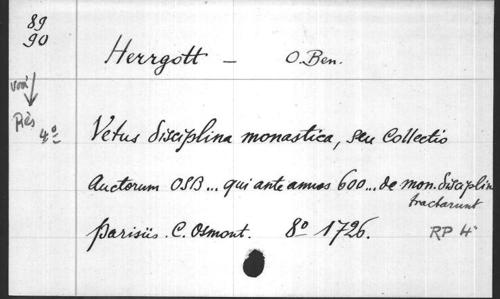 89
90
Herrgott — O. Ben.
voir
Rés
4º
Vetus disciplina monastica, seu Collectio
Auctorum OSB... qui ante annos 600... de mon. disciplin
tractarunt
parisiis. C. Osmont. 8º 1726.
RP 4º